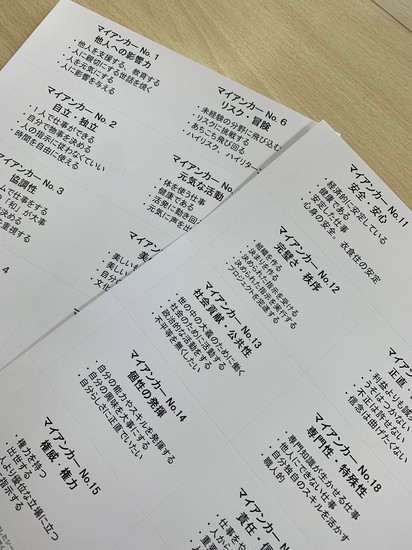 マイアンカー No.1
他人への影響力
・他人を支援する、教育する
・人に親切にする世話を焼く
・人を元気にする
・人に影響を与える
マイアンカー No.2
自立・独立
・1人で仕事ができる
・自分で物事を決める
・人の指示に従わなくていい
・時間を自由に使える
No.3
協調性
ムで仕事をする
「和」が大事
決める
重視する
4
マイアンカー No.6
リスク・冒険
・未経験の分野に飛び込む
・リスクに挑戦する
・あちこち飛び回る
・ハイリスク、ハイリター
マイアンカー
元気な活動
・体を使う仕事
・健康である
・活発に動き回
・元気に時を
マイア
美
・美しい
マイアンカー No.11
安全・安心
・経済的に安定している
・健康である
・安定した仕事
・心身の安全。 衣食住の安定
マイアンカー No.12
完璧さ・秩序
・規律を作る
・決まりを作る
・決められた指示を受ける
・決められた指示を実行する
・プロジェクトを完遂する
マイアンカー No.13
社会貢献・公共性
・世の中の大義のために働く
・社会のために活動する
・政治的な活動をする
・不平等を無くしたい
マイアンカー No.14
個性の発揮
・自分の能力やスキルを発揮する
・自分の興味を大事にする
・自分らしさに正直でいたい
マイアンカー No.15
権威・権力
・権力を持つ
・出世する
・人より優位な立場に立つ
指示する
マイアンカー
正直・
・利益よりも
・うそはつかない
・不正は許せない
・信念は曲げたくない
マイアンカー No.18
専門性・特殊性
・専門知識が生かせる仕事
・他人にできない仕事
・自分独自のスキルを活かす
・職人的
マイアンカー
責任・
・仕事を
・人から
・重要